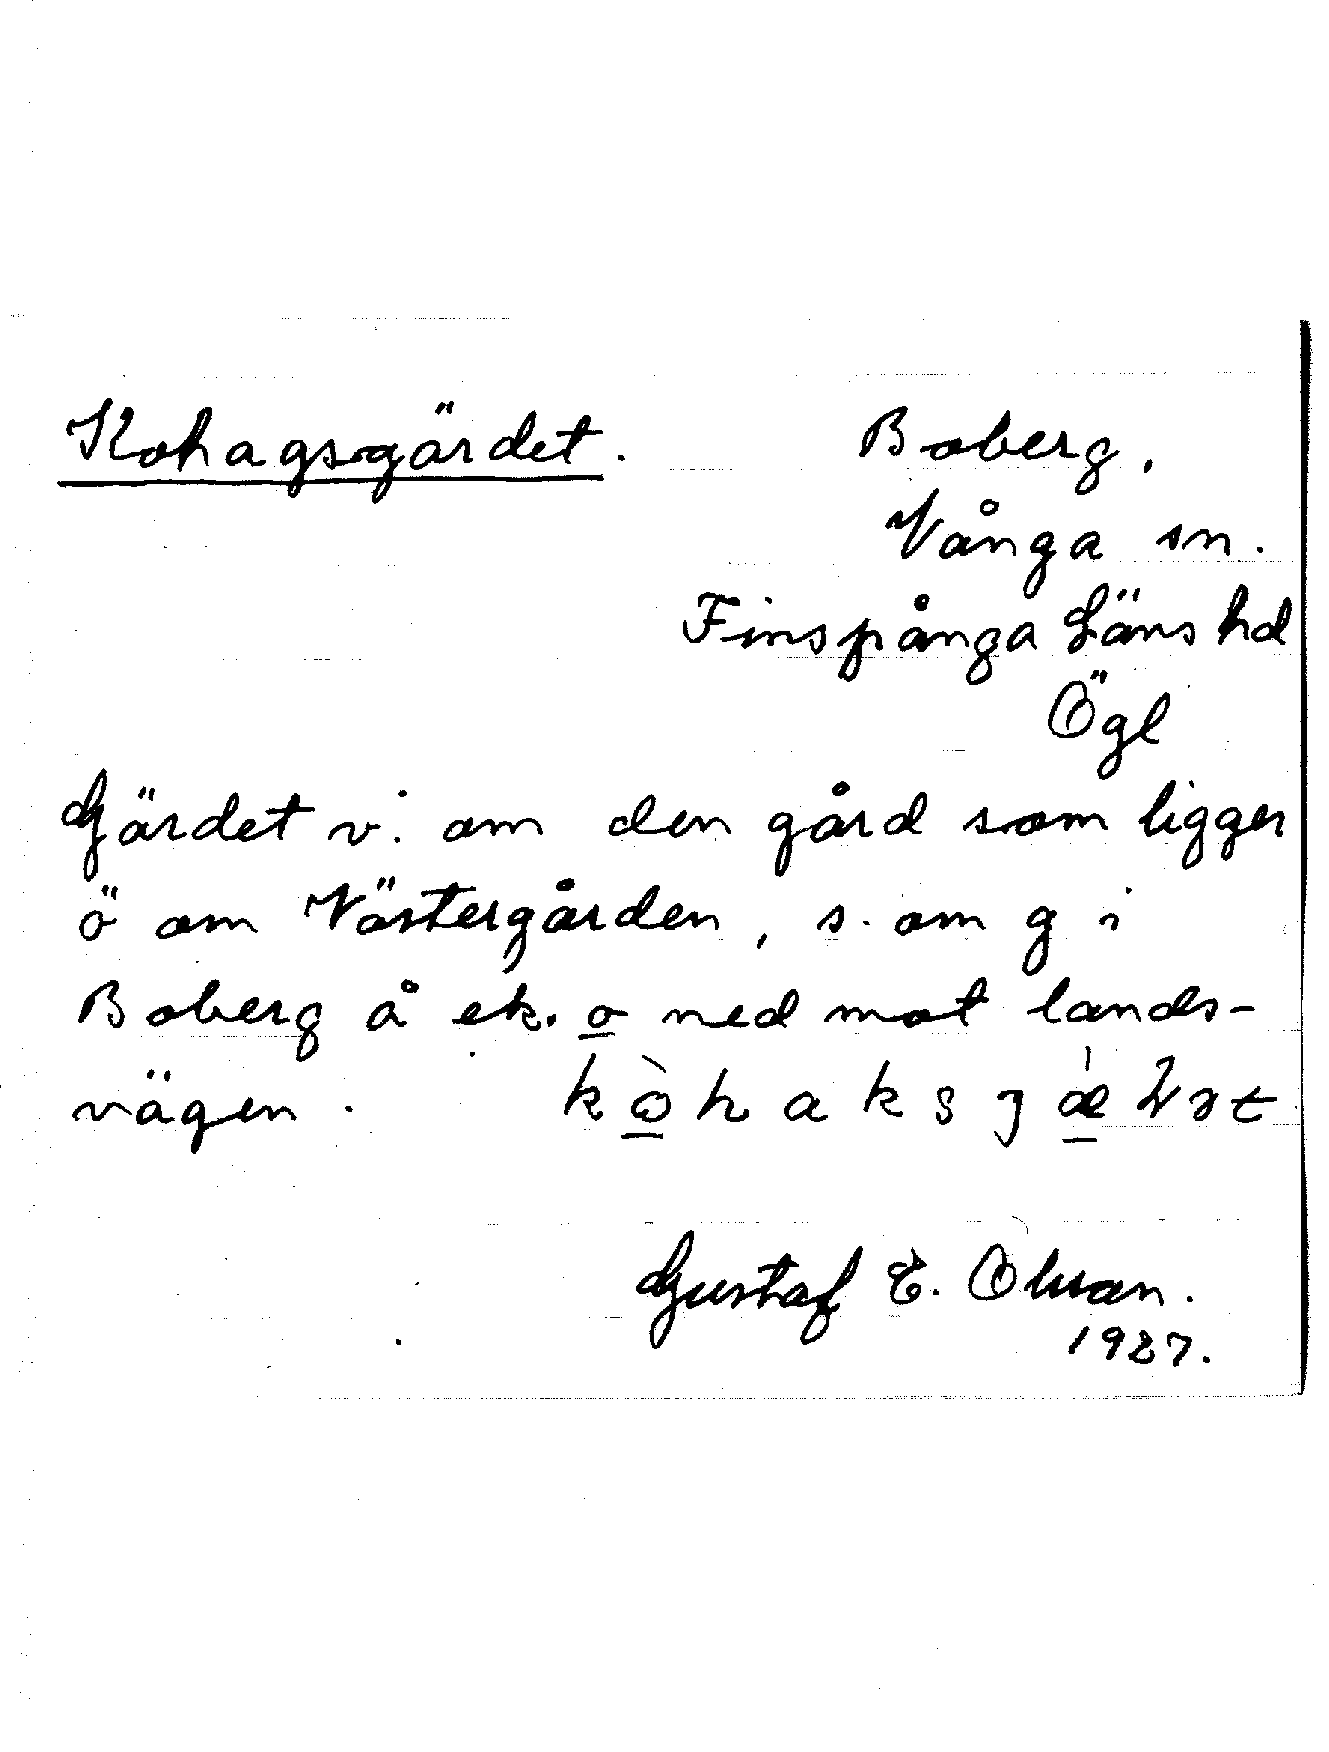 Kohagsgärdet. Boberg,
Vånga sn.
Finspånga Läns hd
Ögl
Gärdet v. om den gård som ligger
ö om Västergården, s. om g i
Boberg å ek. o ned mot lands-
vägen. kòhaksjæ
Gustaf E. Olsson.
1927.